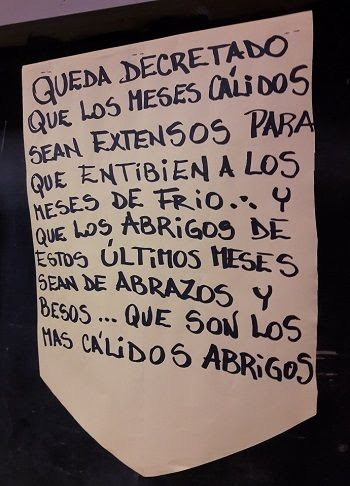 QUEDA DECRETADO
QUE LOS MESES CÁLIDOS
SEAN EXTENSOS PARA
QUE ENTIBIEN A LOS
MESES DE FRIO... Y
QUE LOS ABRIGOS DE
ESTOS ÚLTIMOS MESES
SEAN DE ABRAZOS Y
BESOS... QUE SON LOS
MAS CÁLIDOS ABRIGOS